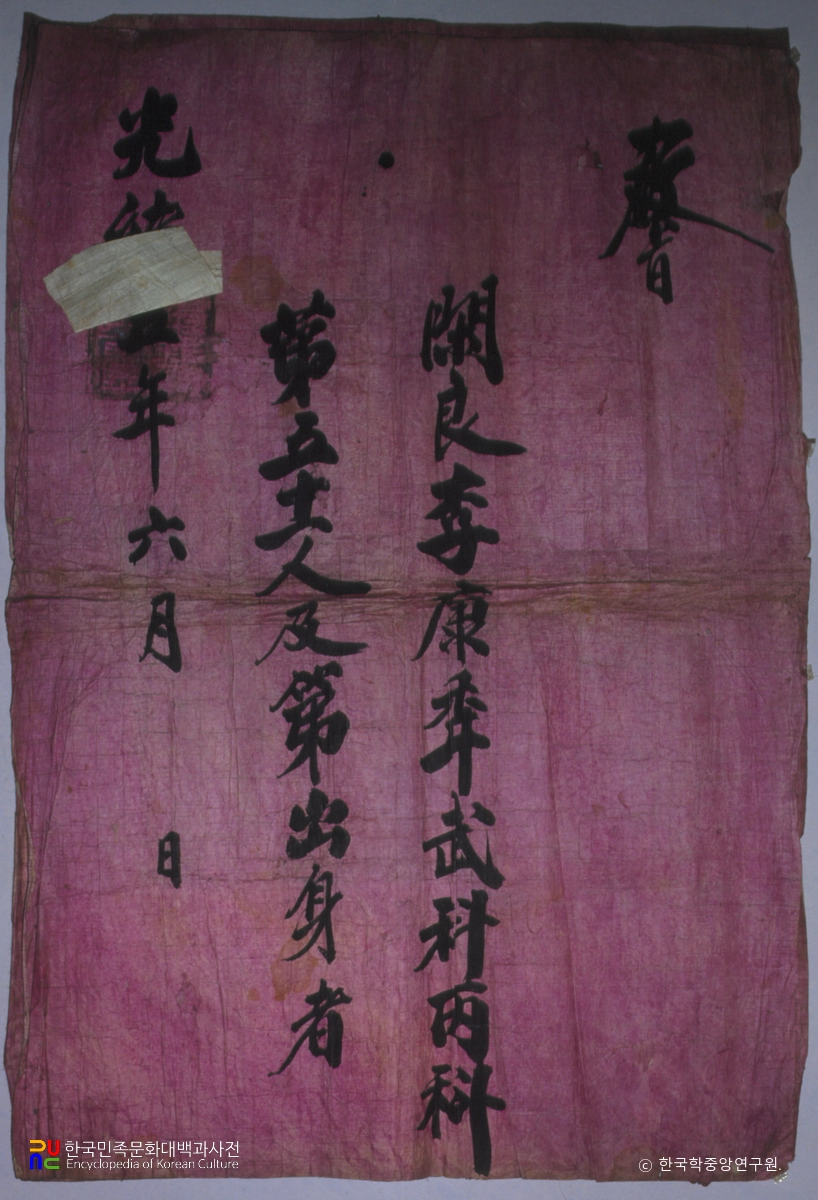 敎旨
閑良李康秊武科丙科
第五十一人及第出身者
光緒五年六月 日
한국민족문화대백과사전
Encyclopedia of Korean Culture
© 한국학중앙연구원